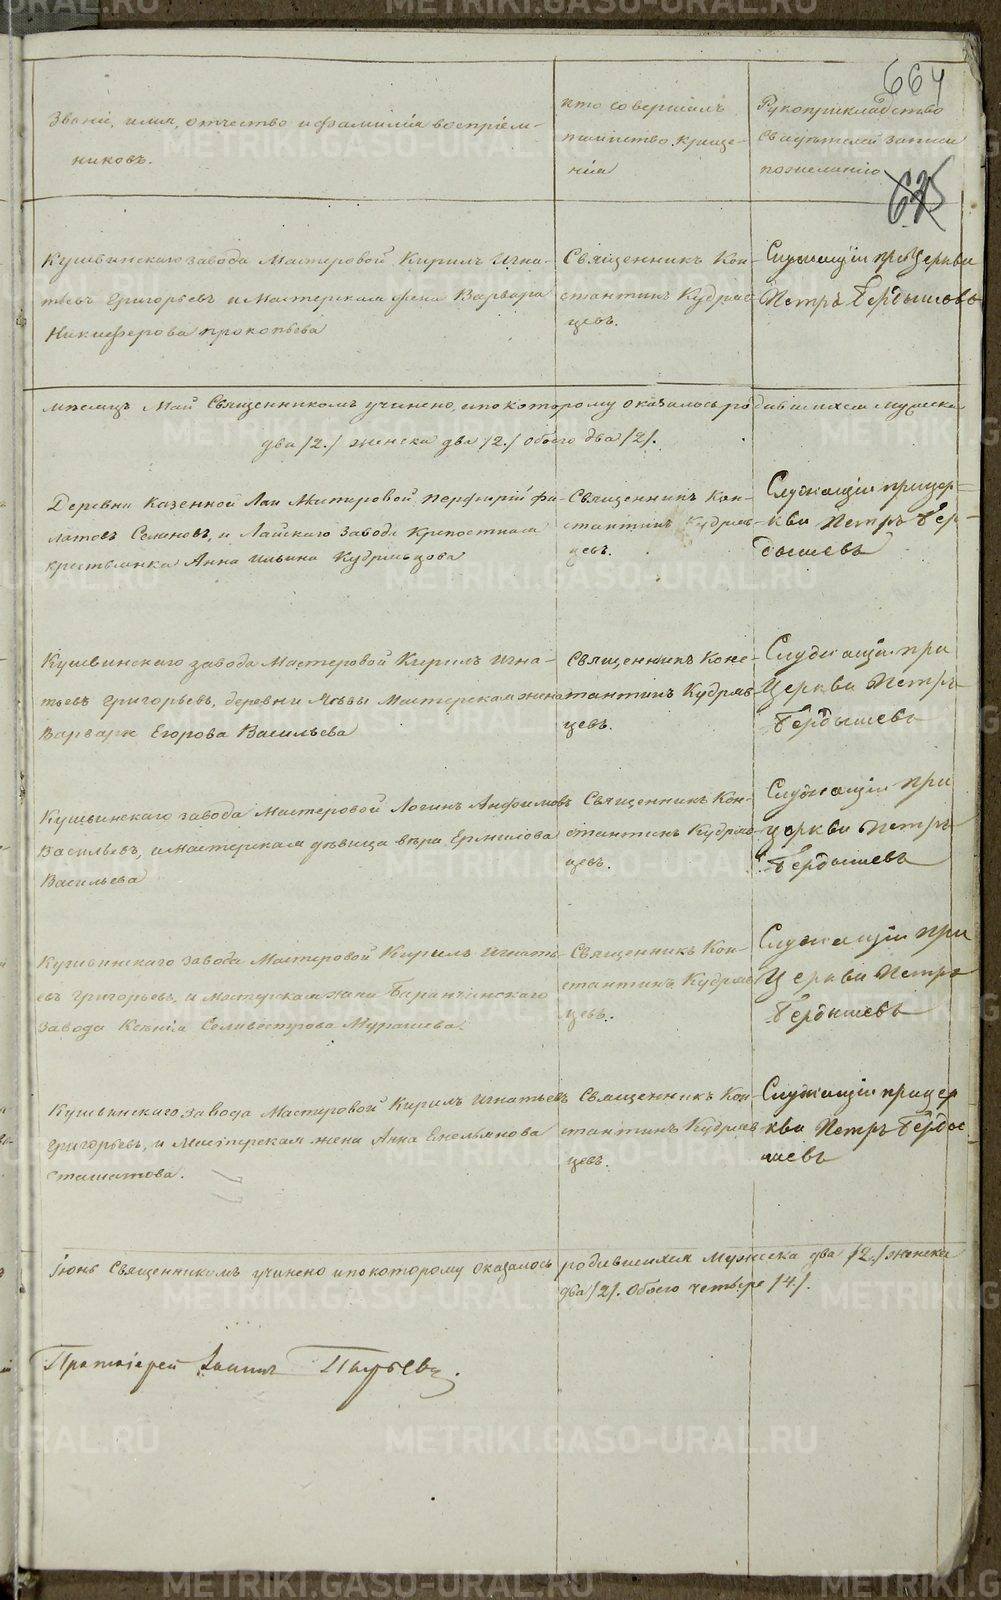 664
Званіе, имя, отчество и фамилія воспріем-
никовъ.
кто совершалъ
таинство креще-
нія
Рукоприкладство
свидѣтелей записи
по желанію
675
Кушвинскаго завода Мастеровой Кирилъ Игна-
тьевъ Григорьевъ и Мастерская жена Варвара
Никиферова Прокопьева
Священникъ Кон-
стантинъ Кудряв-
цевъ.
Служащій при Церкви
Петръ Бердышевъ
мѣсяцъ Май Священникомъ учинено, и по которому оказалось родившихся мужеска
два /2./ женска два /2./ обоего два /2/.
Деревни Казенной Лаи Мастеровой Перфирій Фи-
латовъ Селяновъ, и Лайскаго завода Крепостная
крестьянка Анна Ильина Кудрявцова
Священникъ Кон-
стантинъ Кудряв-
цевъ.
Служащій при цер-
кви Петръ Бер-
дышевъ
Кушвинскаго завода Мастеровой Кирилъ Игна-
тьевъ Григорьевъ, деревни Мастерская жена
Варвара Егорова Васильева
Священникъ Конс-
тантинъ Кудряв-
цевъ.
Служащій при
Церкви Петръ
Бердышевъ
Кушвинскаго завода Мастеровой Логинъ Анфимовъ
Васильевъ, и мастерская дѣвица Вѣра Ермилова
Васильева
Священникъ Кон-
стантинъ Кудряв-
цевъ.
Служащій при
церкви Петръ
Бердышевъ
Кушвинскаго завода Мастеровой Кирилъ Игнать-
евъ Григорьевъ, и мастерская жена Баранчинскаго
завода Ксенія Селивестрова Мурашева.
Священникъ Кон-
стантинъ Кудряв-
цевъ.
Служащій при
Церкви Петръ
Бердышевъ
Кушвинскаго завода Мастеровой Кирилъ Игнатьевъ
Григорьевъ, и Мастерская жена Анна Емельянова
Священникъ Кон-
стантинъ Кудряв-
цевъ.
Служащій при цер
кви Петръ Берды
шевъ
Іюнь Священникомъ учинено и по которому оказалось родившихся Мужеска два /2./ женска
два /2/. Обоего четыре /4./.
Протоіерей Іоаннъ